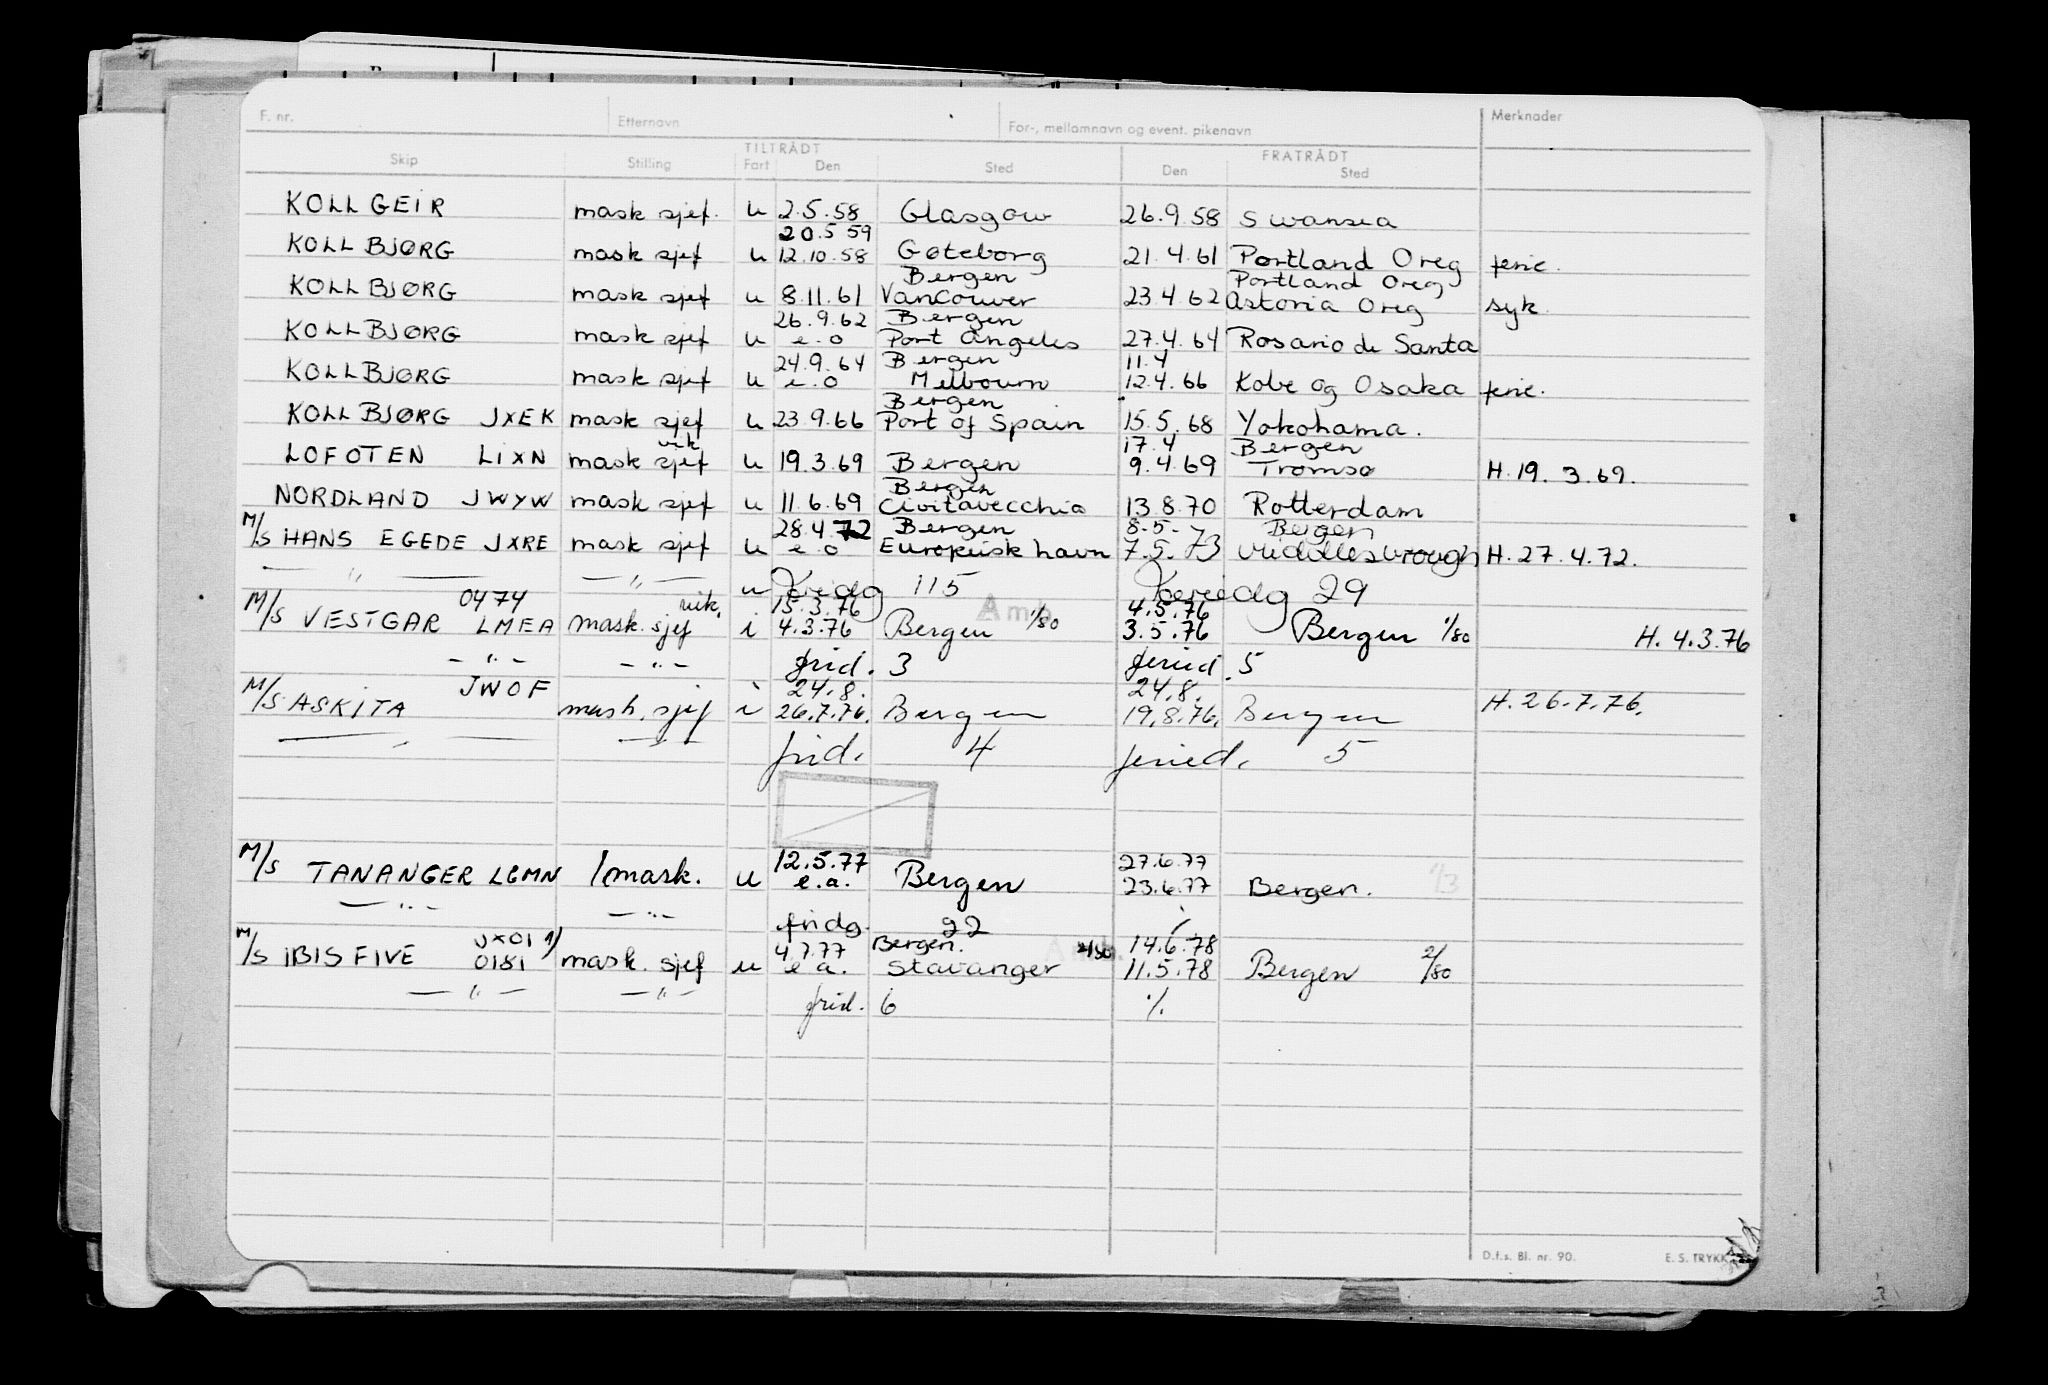 F. nr. Etternavn For-, mellomnavn og event. pikenavn Merknader
TILTRÅDT FRATRÅDT
Skip Stilling Fart Den Sted Den Sted
KOLLGEIR mask sjef. u 2.5.58 Glasgow 26.9.58 Swansea
20.5 59
KOLLBJØRG mask sjef u 12.10.58 Gøteborg 21.4.61 Portland Oreg ferie.
Bergen Portland Oreg
KOLLBJØRG mask sjef u 8.11.61 Vancouver 23.4.62 Astoria Oreg syk.
26.9.62 Bergen
KOLLBJØRG mask sjef u e.o Port Angeles 27.4.64 Rosario de Santa
24.9.64 Bergen 11.4
KOLLBJØRG mask sjef u e.o Melbourn 12.4.66 Kobe og Osaka ferie.
Bergen
KOLLBJØRG JXEK mask sjef u 23.9.66 Port of Spain 15.5.68 Yokohama.
vik 17.4 Bergen
LOFOTEN LIXN mask sjef u 19.3.69 Bergen 9.4.69 Tromsø H.19.3.69.
Bergen
NORDLAND JWYW mask sjef u 11.6.69 Civitavecchia 13.8.70 Rotterdam
28.4.72 Bergen 8.5.- Bergen
M/S HANS EGEDE JXRE mask sjef u e.o Europeisk havn 7.5.73 Middlesbrough H.27.4.72.
— " — — " — u fridg 115 feriedg 29
0474 vik. 15.3.76 Amb. 4.5.76
M/S VESTGAR LMEA mask. sjef i 4.3.76 Bergen 1/80 3.5.76 Bergen 1/80 H. 4.3.76
— " — — " — frid. 3 feried. 5
JWOF 24.8. 24.8.
M/S ASKITA mask. sjef i 26.7.76. Bergen 19.8.76. Bergen H.26.7.76.
— " — — " — frid. 4 feried. 5
12.5.77 27.6.77
M/S TANANGER LGMN 1mask. u e.a. Bergen 23.6.77 Bergen. 1/3
— " — — " — fridg. 22 ./.
JXOI 1/ 4.7.77 Bergen. 14.6.78
M/S IBIS FIVE 0181 mask. sjef u e a. Stavanger 2/80 Amb. 11.5.78 Bergen 2/80
— " — — " — frid. 6 ./.
D.f.s. Bl. nr. 90. E. S. TRYKK